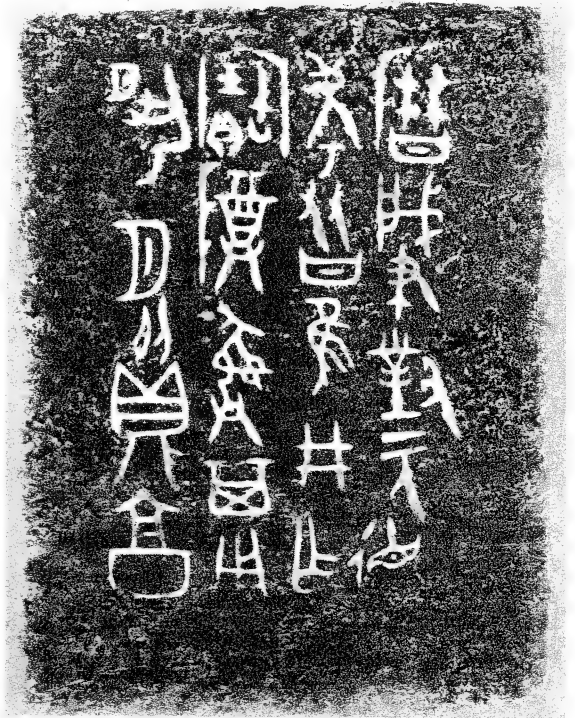 曆肇對元德
孝友隹井乍
寶尊彝其用
夙夕享